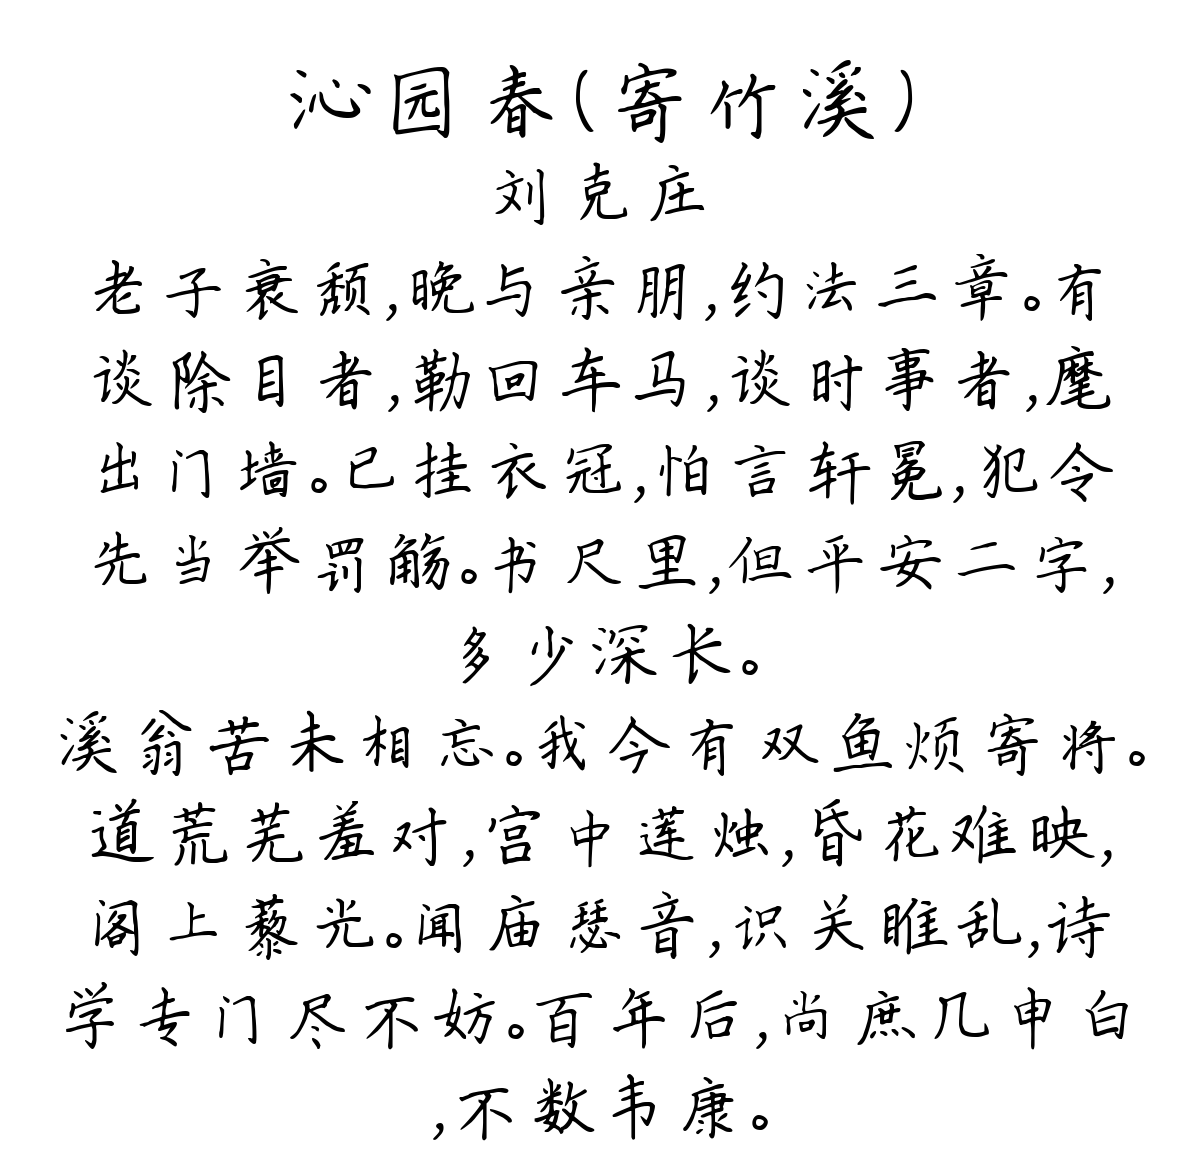 沁园春(寄竹溪)
刘克庄
老子衰颓,晚与亲朋,约法三章。有
谈除目者,勒回车马,谈时事者,麾
出门墙。已挂衣冠,怕言轩冕,犯令
先当举罚觞。书尺里,但平安二字,
多少深长。
溪翁苦未相忘。我今有双鱼烦寄将。
道荒芜羞对,宫中莲烛,昏花难映,
阁上藜光。闻庙瑟音,识关雎乱,诗
学专门尽不妨。百年后,尚庶几申白
,不数韦康。